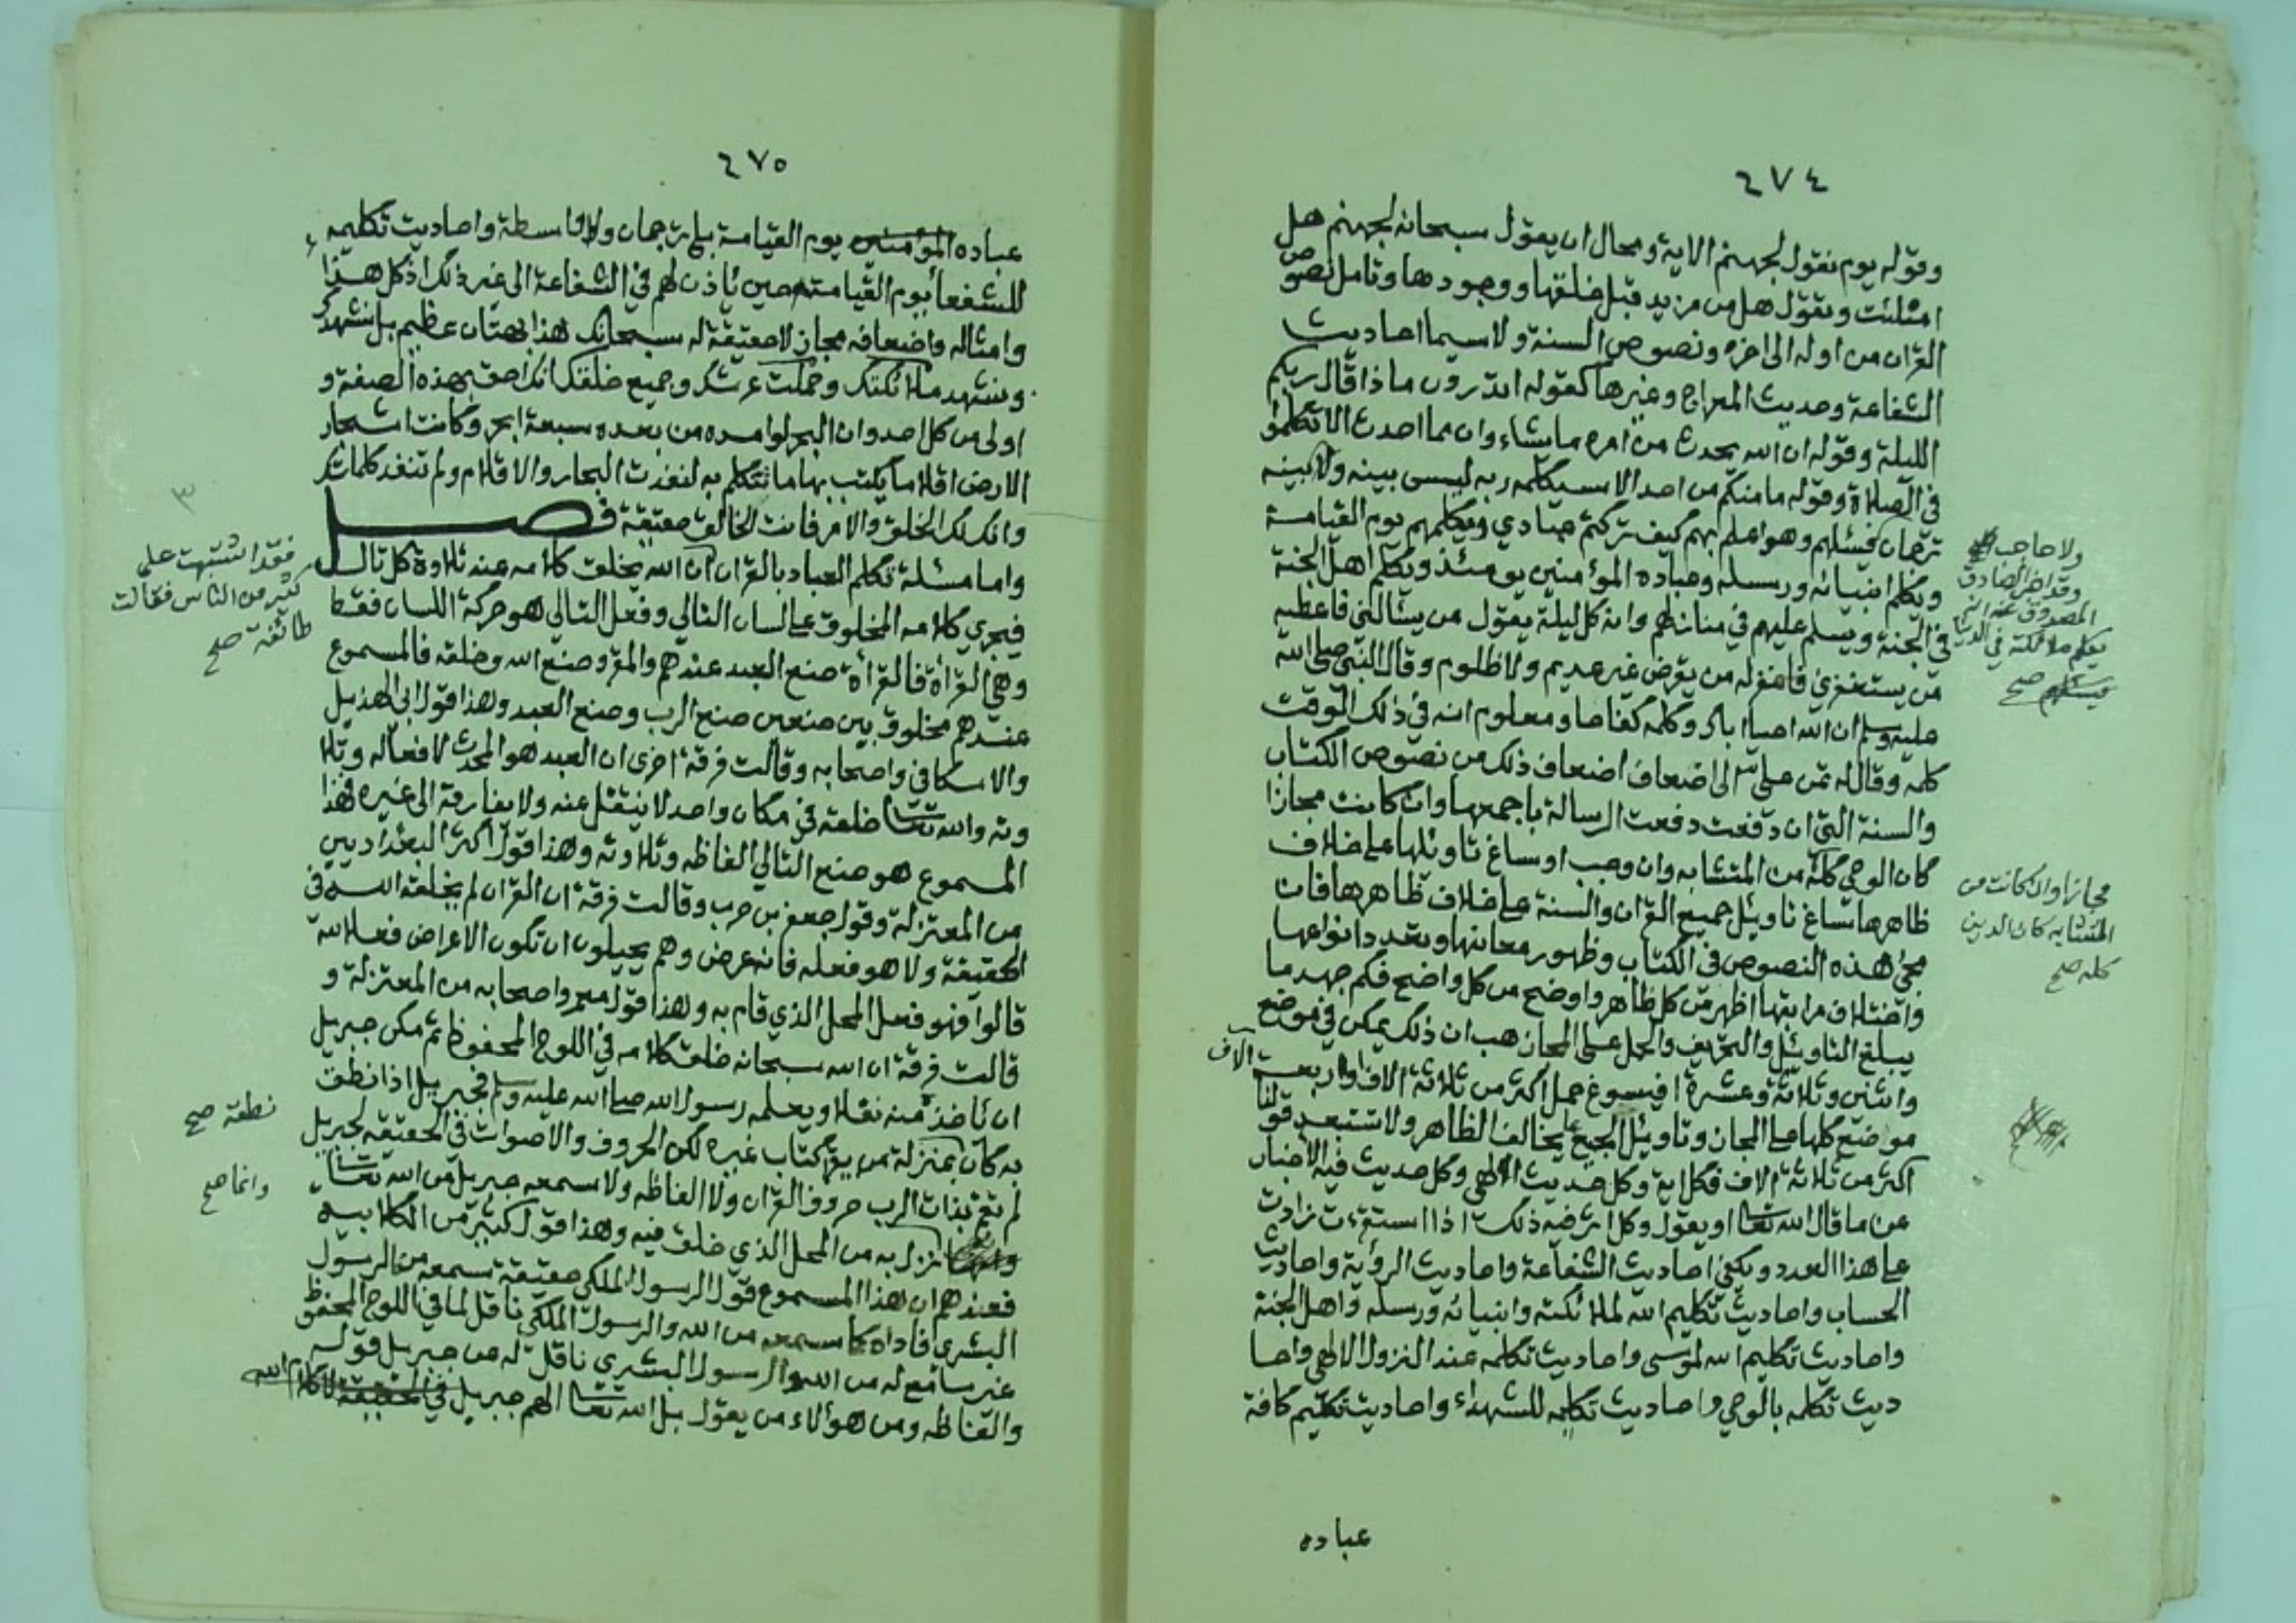 ٤٧٤
وقوله يوم نقول لجهنم الاية ومحال ان يقول سبحانه لجهنم هل
امتلئت وتقول هل من مزيد قبل خلقها ووجودها وتامل نصوص
القران من اوله الى اخره ونصوص السنة ولا سيما احاديث
الشفاعة وحديث المعراج وغيرها كقوله اتدرون ماذا قال ربكم
الليلة وقوله ان الله يحدث من امره ما يشاء وان مما احدث الا تكلموا
في الصلاة وقوله ما منكم من احد الا سيكلمه ربه ليس بينه وبينه
ترجمان فيسئلهم وهو اعلم بهم كيف تركتم عبادي ويكلمهم يوم القيامة
ويكلم انبيائه ورسله وعباده المؤمنين يومئذ ويكلم اهل الجنة
في الجنة ويسلم عليهم في منازلهم وانه كل ليلة يقول من يسالني فاعطيه
من يستغفرني فاغفر له من يقرض غير عديم ولا ظلوم وقال النبي صلى الله
عليه وسلم ان الله احيا اباك وكلمه كفاحا ومعلوم انه في ذلك الوقت
كلمه وقال له تمن علي الى اضعاف اضعاف ذلك من نصوص الكتاب
والسنة التي ان دفعت دفعت الرسالة باجمعها وان كانت مجازا
كان الوحي كله من المتشابه وان وجب او ساغ تاويلها على خلاف
ظاهرها ساغ تاويل جميع القران والسنة على خلاف ظاهرها فان
مجئ هذه النصوص في الكتاب وظهور معانيها وتعدد انواعها
واختلاف مراتبها اظهر من كل ظاهر واوضح من كل واضح فكم جهد ما
يبلغ التاويل والتحريف والحمل على المجاز هب ان ذلك يمكن في موضع
واثنين وثلاثة وعشرة افيسوغ حمل اكثر من ثلاثة الاف واربعة الاف
موضع كلها على المجاز وتاويل الجميع بما يخالف الظاهر ولا تستبعد قولنا
اكثر من ثلاثة الاف فكل اية وكل حديث الهي وكل حديث فيه الاخبار
عن ما قال الله تعا او يقول وكل اثر فيه ذلك اذا استقرئت زادت
على هذا العدد ويكفي احاديث الشفاعة واحاديث الرؤية واحاديث
الحساب واحاديث تكليم الله لملائكته وانبيائه ورسله واهل الجنة
واحاديث تكليم الله لموسى واحاديث تكلمه عند النزول الالهي واحا
ديث تكلمه بالوحي واحاديث تكليمه للشهداء واحاديث تكليم كافة
عباده
ولا حاجب
وقد اخبر الصادق
المصدوق عنه انه
يكلم ملائكته في الدنيا
صح
مجازا وان كانت من
المتشابه كان الدين
كله صح
٤٧٥
عباده المؤمنين يوم القيامة بلا ترجمان ولا واسطة واحاديث تكليمه
للشفعا يوم القيامة حين ياذن لهم في الشفاعة الى غير ذلك اذ كل هذا
وامثاله واضعافه مجاز لا حقيقة له سبحانك هذا بهتان عظيم بل نشهدك
ونشهد ملائكتك وحملت عرشك وجميع خلقك انك احق بهذه الصفة و
اولى من كل احد وان البحر لو امده من بعده سبعة ابحر وكانت اشجار
الارض اقلاما يكتب بها ما تتكلم به لنفذت البحار والاقلام ولم تنفد كلماتك
وانك لك الخلق والامر فانت الخالق حقيقة فصل
واما مسئلة تكلم العباد بالقران ان الله يخلق كلامه عند تلاوة كل تال
فيجري كلامه المخلوق على لسان التالي وفعل التالي هو حركة اللسان فقط
وهي القرأة فالقرأة صنع العبد عندهم والمقروء صنع الله وخلقه فالمسموع
عندهم مخلوق بين صنعين صنع الرب وصنع العبد وهذا قول ابي الهذيل
والاسكافي واصحابه وقالت فرقة اخرى ان العبد هو المحدث لافعاله وتلا
وته والله تعا خلقه في مكان واحد لا ينتقل عنه ولا يفارقه الى غيره فهذا
المسموع هو صنع التالي الفاظه وتلاوته وهذا قول اكثر البغداديين
من المعتزلة وقول جعفر بن حرب وقالت فرقة ان القران لم يخلقه الله في
الحقيقة ولا هو فعله فانه عرض وهم يحيلون ان تكون الاعراض فعلا لله
قالوا فهو فعل المحل الذي قام به وهذا قول معمر واصحابه من المعتزلة و
قالت فرقة ان الله سبحانه خلق كلامه في اللوح المحفوظ ثم مكن جبريل
ان ياخذ منه نقلا ويعلمه رسول الله صلى الله عليه وسلم فجبريل اذا نطق
به كان بمنزلة من يقرأ كتاب غيره لكن الحروف والاصوات في الحقيقة لجبريل
لم تقم بذات الرب حروف القران ولا الفاظه ولا سمعه جبريل من الله تعا
نزل به من المحل الذي خلق فيه وهذا قول كثير من الكلابية
فعندهم ان هذا المسموع قول الرسول الملكي حقيقة سمعه من الرسول
البشري فاداه كما سمعه من الله والرسول الملكي ناقل لما في اللوح المحفوظ
غير سامع له من الله والرسول البشري ناقل له من جبريل قوله
والفاظه ومن هؤلاء من يقول بل الله تعا الهم جبريل في الحقيقة لا كلام الله
٣
فقد اشتبهت على
كثير من الناس فقالت
طائفة صح
نطقه صح
وانما صح